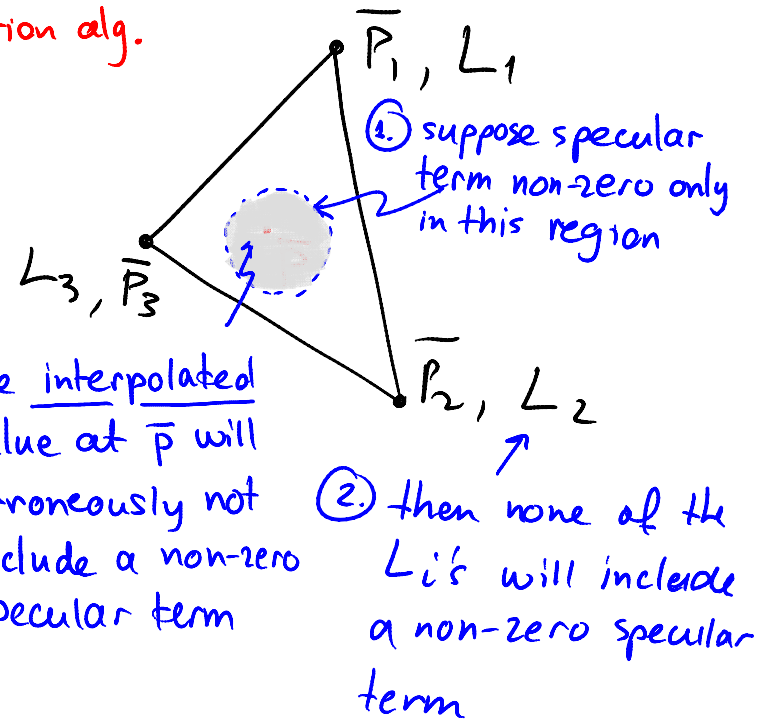 tion alg.
P̅₁, L₁
1. suppose specular
term non-zero only
in this region
L₃, P̅₃
P̅₂, L₂
e interpolated
lue at p̅ will
roneously not
clude a non-zero
pecular term
2. then none of the
Li's will include
a non-zero specular
term